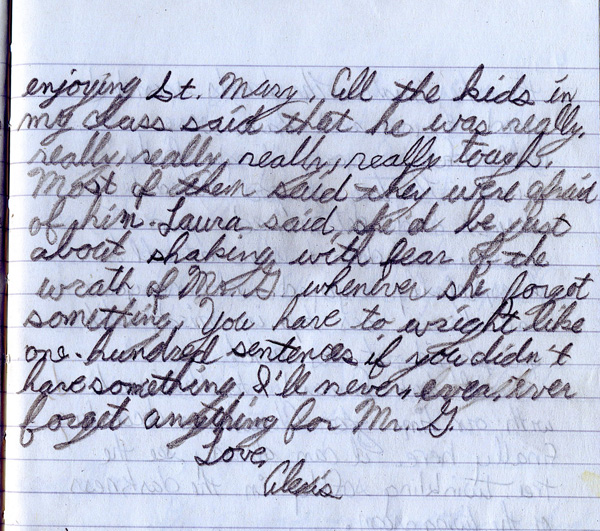 enjoying St. Mary. All the kids in
my class said that he was really,
really, really, really, really tough.
Most of them said they were afraid
of him. Laura said she'd be just
about shaking with fear of the
wrath of Mr. G whenever she forgot
something. You have to wright like
one-hundred sentences if you didn't
have something. I'll never, ever, ever
forget anything for Mr. G.
Love,
Alexis